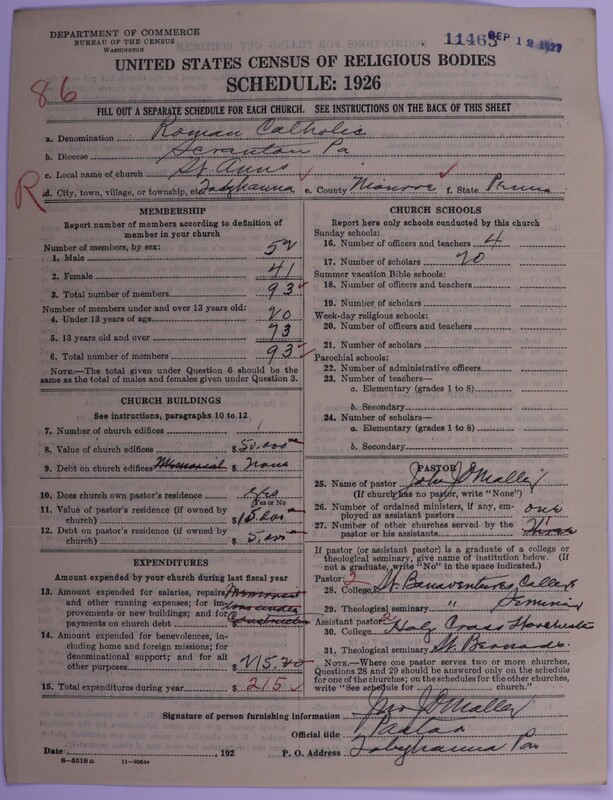 DEPARTMENT OF COMMERCE
BUREAU OF THE CENSUS
WASHINGTON
11463 SEP 12 1927
UNITED STATES CENSUS OF RELIGIOUS BODIES
SCHEDULE: 1926
86
FILL OUT A SEPARATE SCHEDULE FOR EACH CHURCH. SEE INSTRUCTIONS ON THE BACK OF THIS SHEET
a. Denomination Roman Catholic
b. Diocese Scranton Pa
c. Local name of church St Anns
R
d. City, town, village, or township, etc. Tobyhanna e. County Monroe f. State Penna
MEMBERSHIP
Report number of members according to definition of member in your church
Number of members, by sex:
1. Male 52
2. Female 41
3. Total number of members 93
Number of members under and over 13 years old:
4. Under 13 years of age 20
5. 13 years old and over 73
6. Total number of members 93
NOTE.—The total given under Question 6 should be the same as the total of males and females given under Question 3.
CHURCH BUILDINGS
See instructions, paragraphs 10 to 12
7. Number of church edifices 1
8. Value of church edifices $50.000
9. Debt on church edifices Memorial $ None
10. Does church own pastor's residence yes
Yes or No
11. Value of pastor's residence (if owned by church) $
12. Debt on pastor's residence (if owned by church) $ 5,000
EXPENDITURES
Amount expended by your church during last fiscal year
13. Amount expended for salaries, repairs, and other running expenses; for improvements or new buildings; and for payments on church debt Memorial under Construction
14. Amount expended for benevolences, including home and foreign missions; for denominational support; and for all other purposes $215.40
15. Total expenditures during year $ 215
CHURCH SCHOOLS
Report here only schools conducted by this church
Sunday schools:
16. Number of officers and teachers 4
17. Number of scholars 20
Summer vacation Bible schools:
18. Number of officers and teachers
19. Number of scholars
Week-day religious schools:
20. Number of officers and teachers
21. Number of scholars
Parochial schools:
22. Number of administrative officers
23. Number of teachers—
a. Elementary (grades 1 to 8)
b. Secondary
24. Number of scholars—
a. Elementary (grades 1 to 8)
b. Secondary
PASTOR
25. Name of pastor John J O'Malley
(If church has no pastor, write "None")
26. Number of ordained ministers, if any, employed as assistant pastors one
27. Number of other churches served by the pastor or his assistants Three
If pastor (or assistant pastor) is a graduate of a college or theological seminary, give name of institution below. (If not a graduate, write "No" in the space indicated.)
Pastor: 3
28. College St. Bonaventures College
29. Theological seminary " Seminary
Assistant pastor: 2
30. College Holy Cross Worchester
31. Theological seminary St. Bernards
NOTE.—Where one pastor serves two or more churches, Questions 28 and 29 should be answered only on the schedule for one of the churches; on the schedules for the other churches, write "See schedule for church."
Signature of person furnishing information Jno J O'Malley
Official title Pastor
Date , 192 P. O. Address Tobyhanna Pa
8—5518 a 11—9984